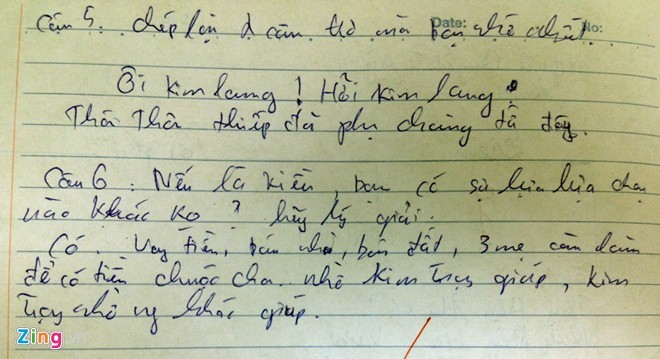 Câu 5. chép lại 2 câu thơ mà bạn nhớ nhất. Date: No:
Ôi kim lang! Hỡi kim lang!
Thôi Thôi thiếp đã phụ chàng từ đây.
Câu 6: Nếu là kiều, bạn có sự lựa lựa chọn
nào khác ko? hãy lý giải.
Có. Vay tiền, bán nhà, bán đất, 3 mẹ con làm
để có tiền chuộc cha. nhờ Kim Trọng giúp, kim
trọng nhờ ng khác giúp.
Zing.vn